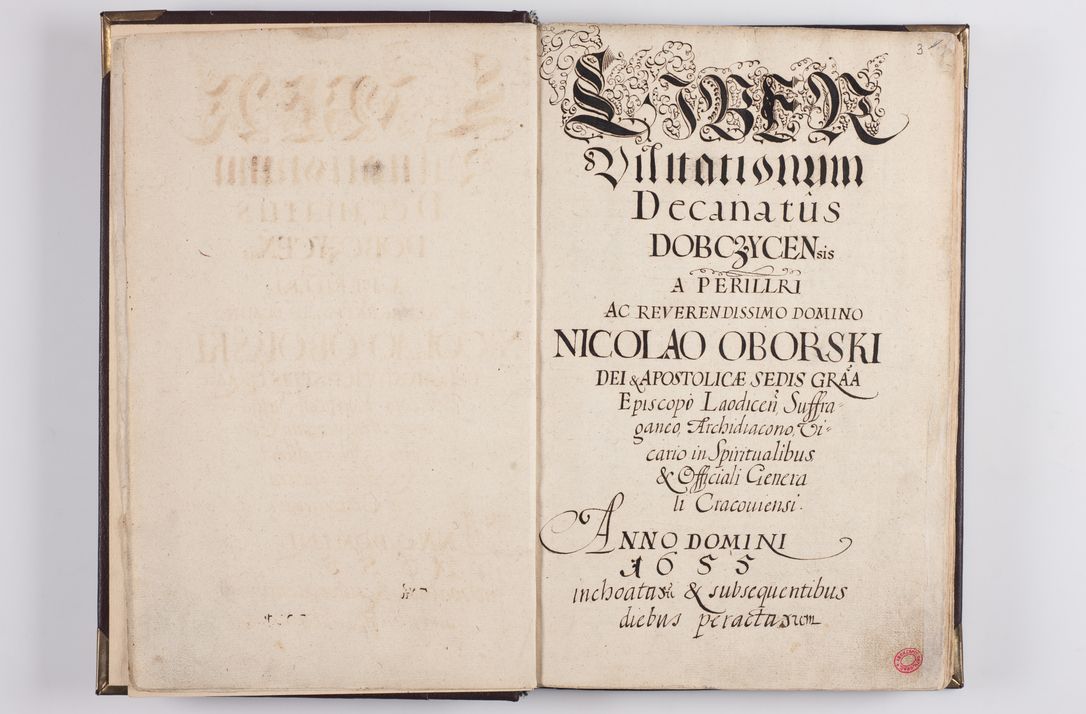 3
LIBER
Visitationum
Decanatûs
DOBCZYCENsis
A PERILLRI
AC REVERENDISSIMO DOMINO
NICOLAO OBORSKI
DEI & APOSTOLICÆ SEDIS GRÃA
Episcopo Laodiceñ, Suffra-
ganeo, Archidiacono, Vi-
cario in Spiritualibus
& Officiali Genera
li Cracouiensi.
ANNO DOMINI
1655
inchoatarũ & subsequentibus
diebus peractarum